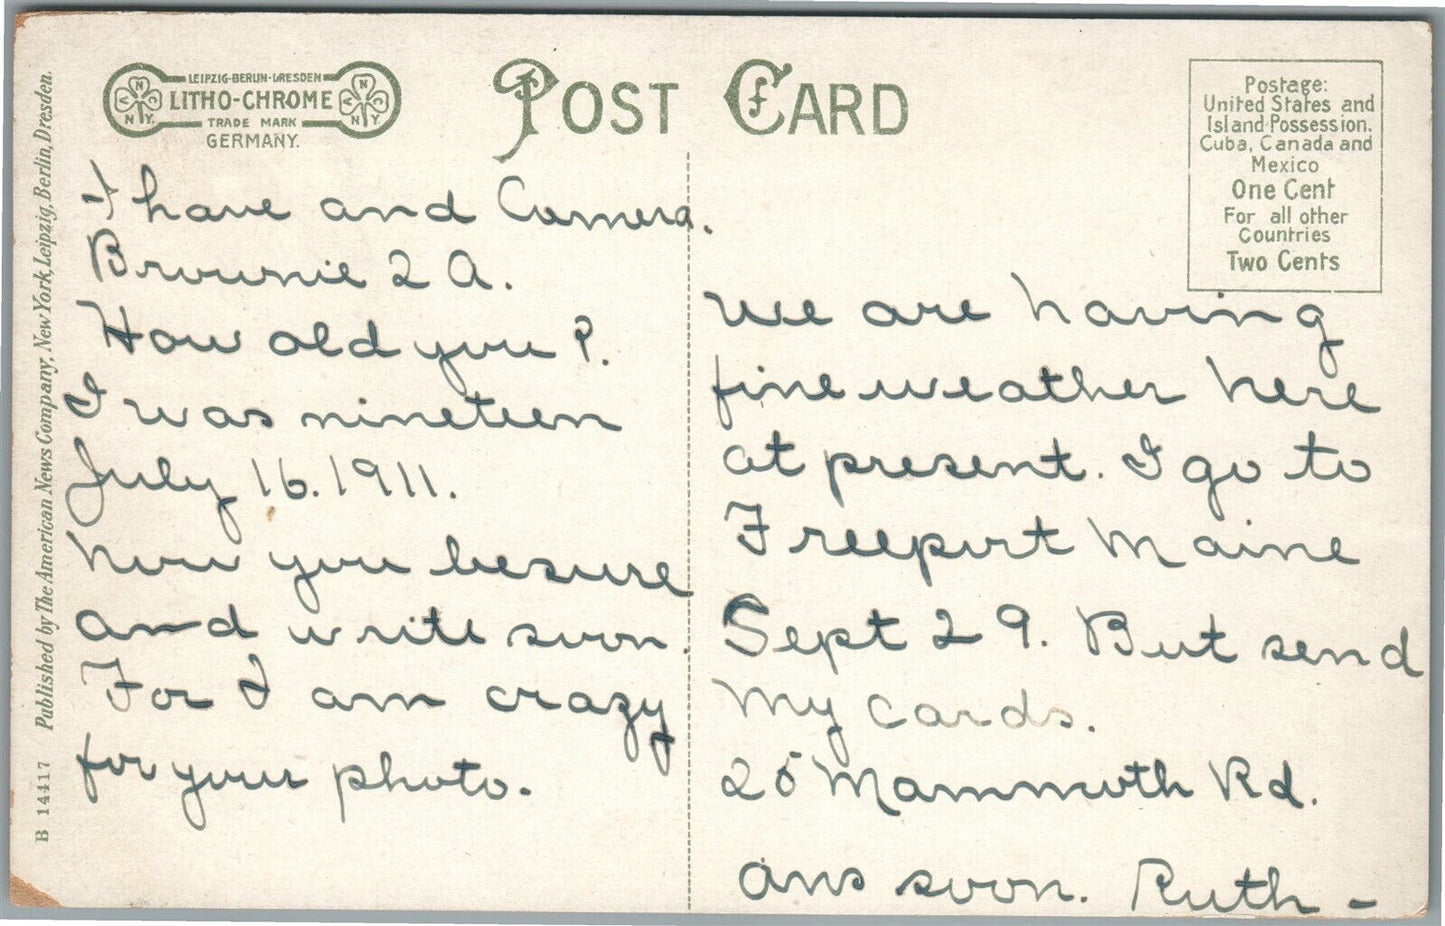 LEIPZIG-BERLIN-DRESDEN
LITHO-CHROME
TRADE MARK
GERMANY.
N
Y.
N
Y.
POST CARD
Postage:
United States and
Island Possession.
Cuba, Canada and
Mexico
One Cent
For all other
Countries
Two Cents
B 14417 Published by The American News Company, New York, Leipzig, Berlin, Dresden.
I have and Camera.
Brownie 2 A.
How old you?.
I was nineteen
July 16. 1911.
Now you besure
and write soon.
For I am crazy
for your photo.
We are having
fine weather here
at present. I go to
Freeport Maine
Sept 29. But send
My cards.
25 Mammoth Rd.
ans soon. Ruth -